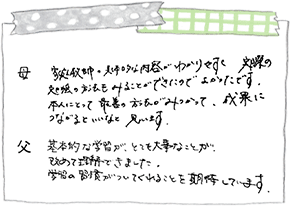 母 家庭教師の具体的な内容がわかりやすく 実際の
勉強の方法もみることができたのでよかったです。
本人にとって最善の方法がみつかって、成果に
つながるといいなと思います。
父 基本的な学習が、とても大事なことが、
改めて理解できました。
学習の習慣がついてくれることを期待しています。